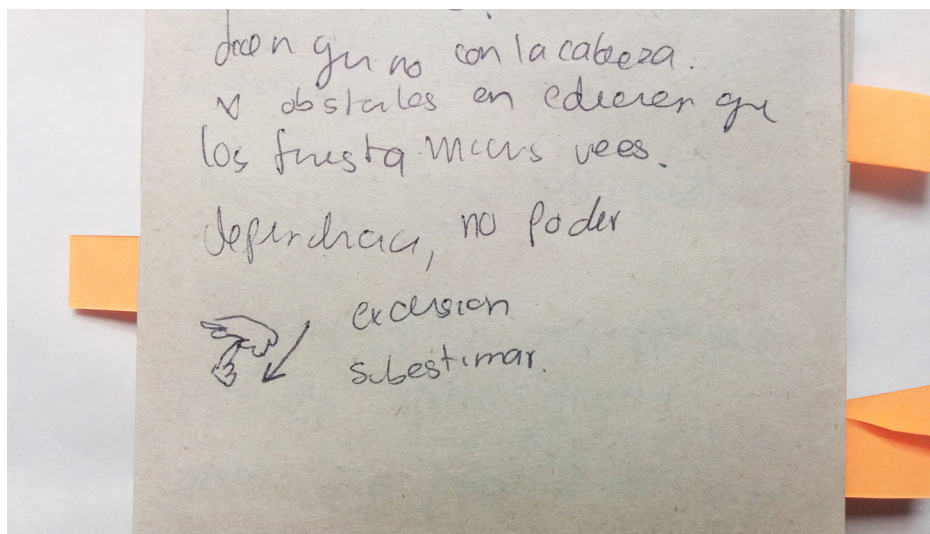 dicen que no con la cabeza.
obstculos en educcion que
los frusta muchas veces.
dependencia, no poder
exclusion
subestimar.